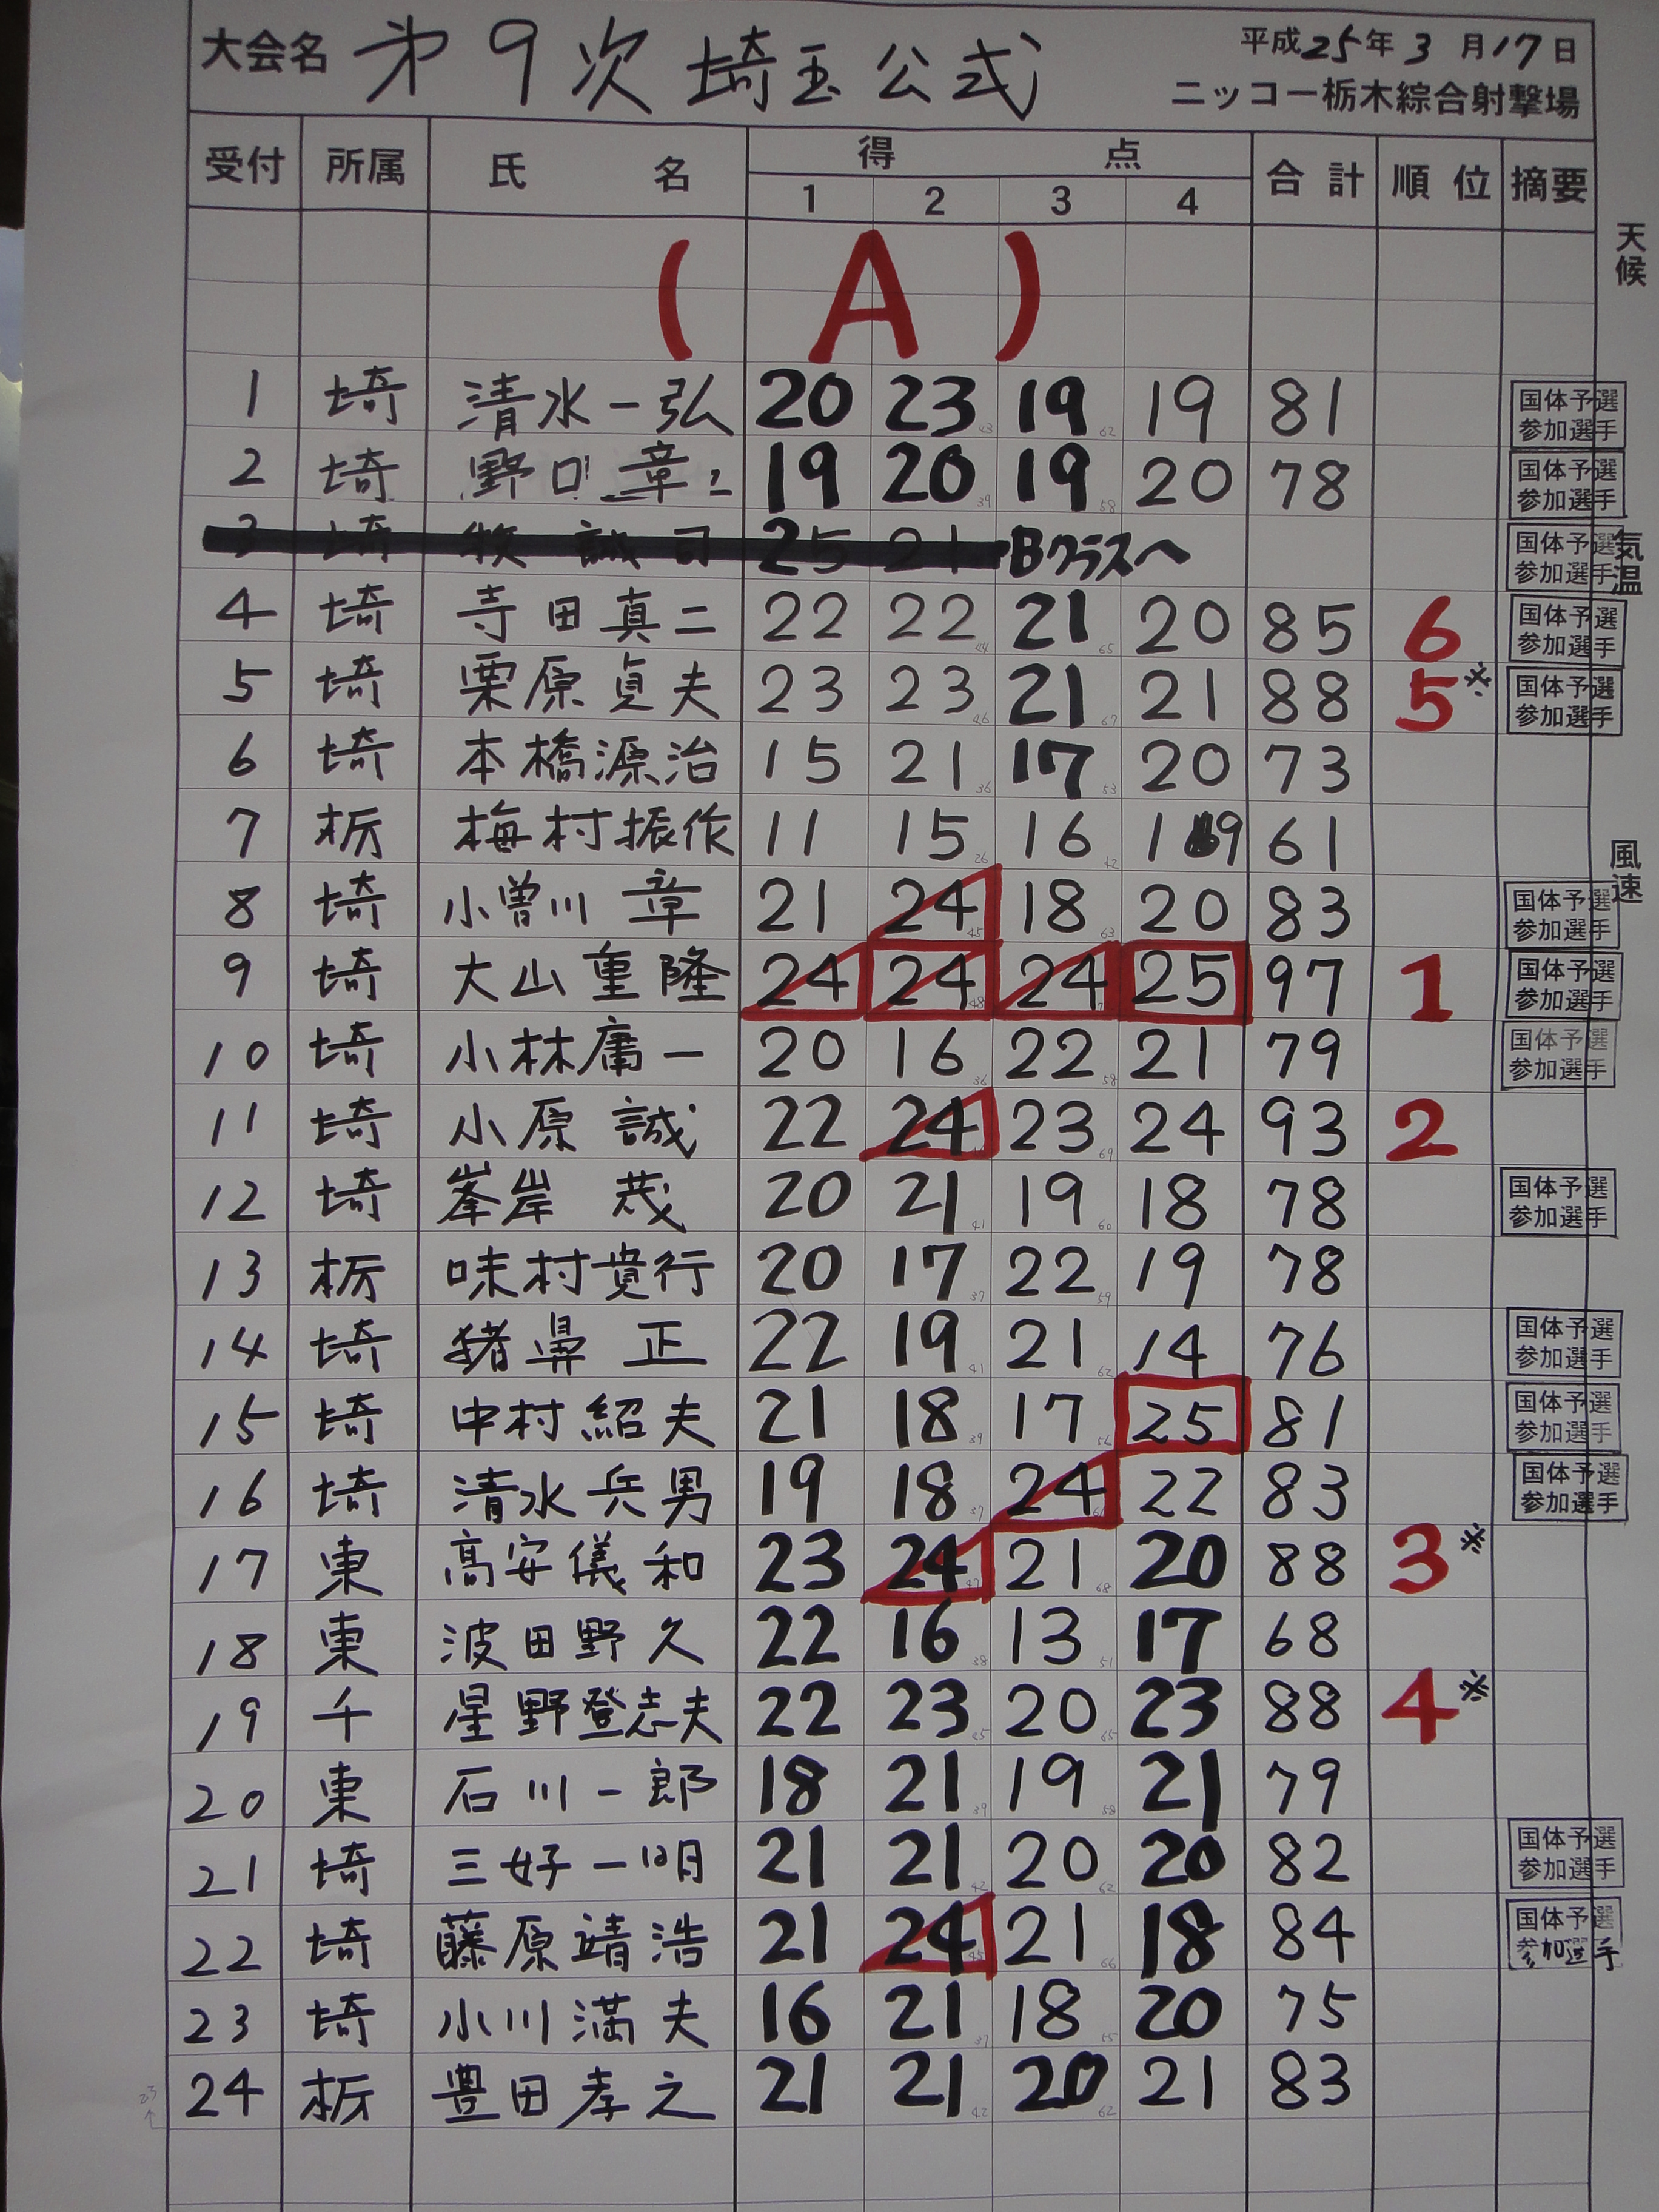 大会名 第9次 埼玉公式
平成25年3月17日
ニッコー栃木綜合射撃場
受付 所属 氏名 得点 合計 順位 摘要
1 2 3 4
天候
(A)
1 埼 清水一弘 20 23 19 19 81 国体予選
参加選手
2 埼 野口章二 19 20 19 20 78 国体予選
参加選手
3 埼 牧誠司 25 21 Bクラスへ 国体予選
参加選手
気温
4 埼 寺田真二 22 22 21 20 85 6 国体予選
参加選手
5 埼 栗原貞夫 23 23 21 21 88 5※ 国体予選
参加選手
6 埼 本橋源治 15 21 17 20 73
7 栃 梅村振作 11 15 16 19 61
風速
8 埼 小曽川章 21 24 18 20 83 国体予選
参加選手
9 埼 大山重隆 24 24 24 25 97 1 国体予選
参加選手
10 埼 小林庸一 20 16 22 21 79 国体予選
参加選手
11 埼 小原誠 22 24 23 24 93 2
12 埼 峯岸茂 20 21 19 18 78 国体予選
参加選手
13 栃 味村貴行 20 17 22 19 78
14 埼 猪鼻正 22 19 21 14 76 国体予選
参加選手
15 埼 中村紹夫 21 18 17 25 81 国体予選
参加選手
16 埼 清水兵男 19 18 24 22 83 国体予選
参加選手
17 東 高安儀和 23 24 21 20 88 3※
18 東 波田野久 22 16 13 17 68
19 千 星野登志夫 22 23 20 23 88 4※
20 東 石川一郎 18 21 19 21 79
21 埼 三好一明 21 21 20 20 82 国体予選
参加選手
22 埼 藤原靖浩 21 24 21 18 84 国体予選
参加選手
23 埼 小川満夫 16 21 18 20 75
24 栃 豊田孝之 21 21 20 21 83